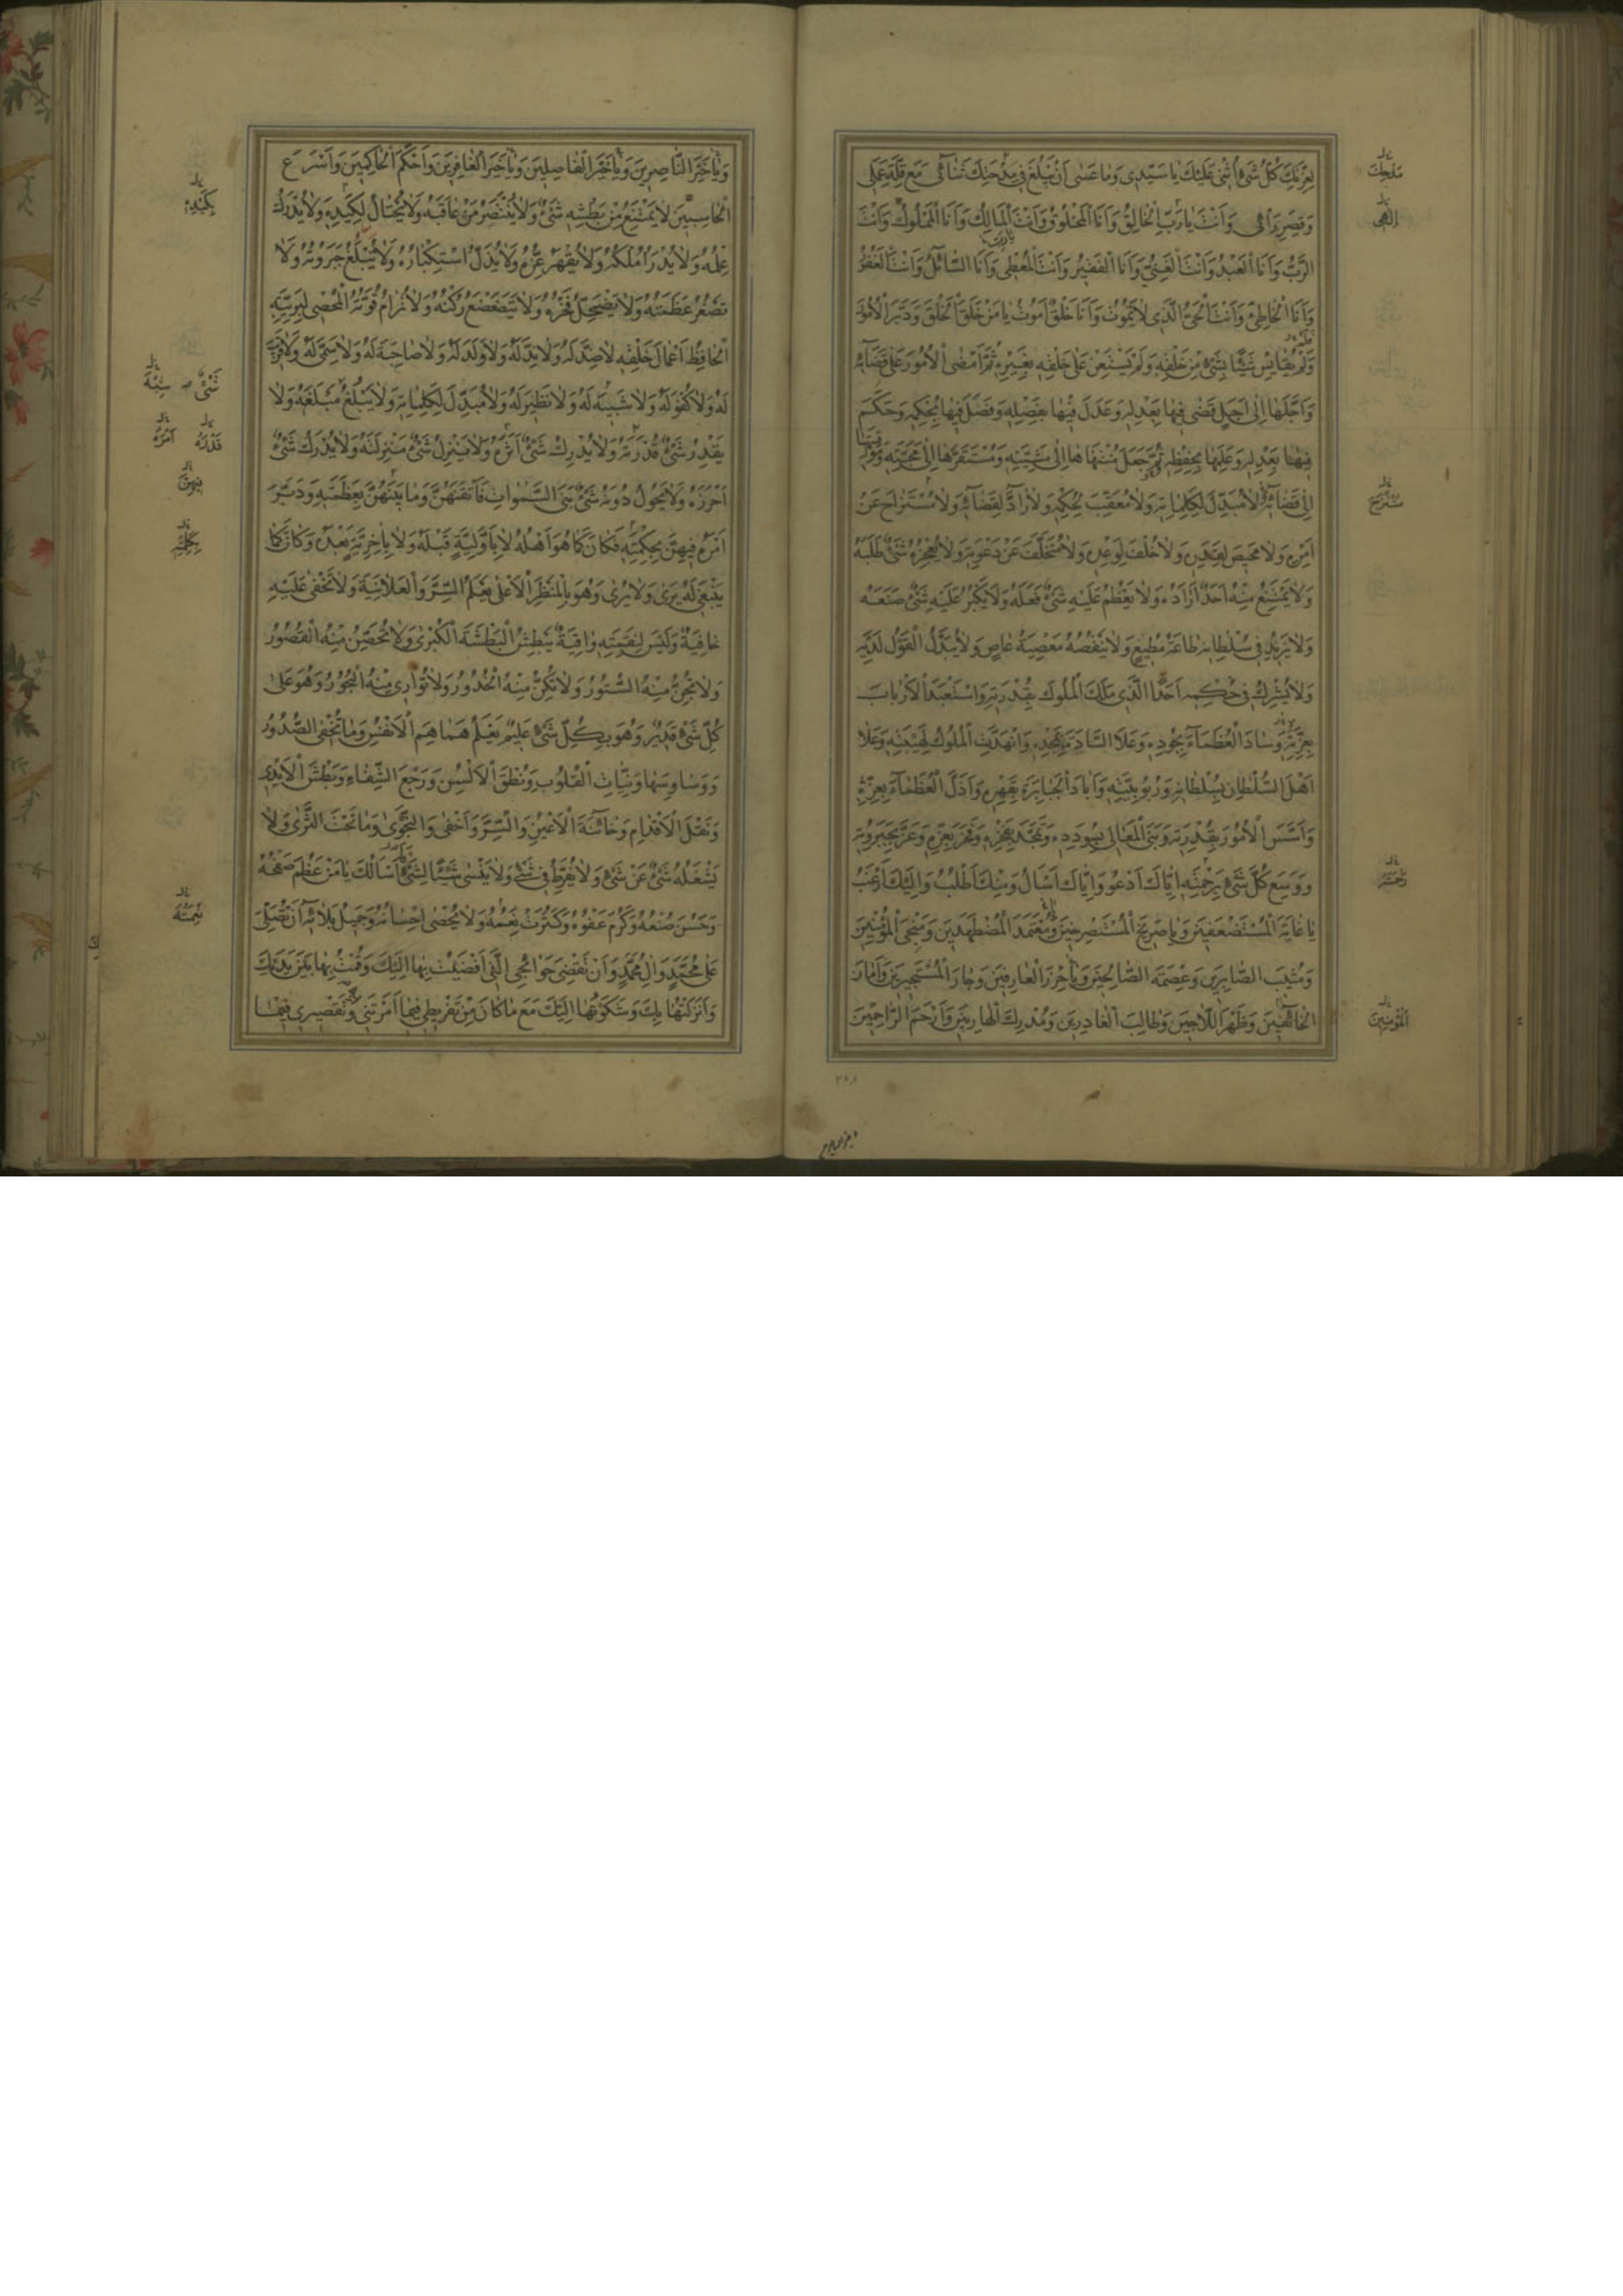 لِعِزَّتِكَ كُلُّ شَيْءٍ أُثْنِي عَلَيْكَ يَا سَيِّدِي وَمَا عَسَى أَنْ يَبْلُغَ فِي مِدْحَتِكَ ثَنَائِي مَعَ قِلَّةِ عَمَلِي
وَقِصَرِ رَأْيِي وَأَنْتَ يَا رَبِّ الْخَالِقُ وَأَنَا الْمَخْلُوقُ وَأَنْتَ الْمَالِكُ وَأَنَا الْمَمْلُوكُ وَأَنْتَ
الرَّبُّ وَأَنَا الْعَبْدُ وَأَنْتَ الْغَنِيُّ وَأَنَا الْفَقِيرُ وَأَنْتَ الْمُعْطِي وَأَنَا السَّائِلُ وَأَنْتَ الْغَفُورُ
وَأَنَا الْخَاطِئُ وَأَنْتَ الْحَيُّ الَّذِي لَا يَمُوتُ وَأَنَا خَلْقٌ أَمُوتُ يَا مَنْ خَلَقَ الْخَلْقَ وَدَبَّرَ الْأُمُورَ
وَلَمْ يُقَايِسْ شَيْئًا بِشَيْءٍ مِنْ خَلْقِهِ وَلَمْ يَسْتَعِنْ عَلَى خَلْقِهِ بِغَيْرِهِ ثُمَّ أَمْضَى الْأُمُورَ عَلَى قَضَائِهِ
وَأَجَّلَهَا إِلَى أَجَلٍ قَضَى فِيهَا بِعَدْلِهِ وَعَدَلَ فِيهَا بِفَضْلِهِ وَفَصَلَ فِيهَا بِحُكْمِهِ وَحَكَمَ
فِيهَا بِعَدْلِهِ وَعَلِمَهَا بِحِفْظِهِ ثُمَّ جَعَلَ مُنْتَهَاهَا إِلَى مَشِيَّتِهِ وَمُسْتَقَرَّهَا إِلَى مَحَبَّتِهِ وَمَوَاقِيتَهَا
إِلَى قَضَائِهِ لَا مُبَدِّلَ لِكَلِمَاتِهِ وَلَا مُعَقِّبَ لِحُكْمِهِ وَلَا رَادَّ لِقَضَائِهِ وَلَا مُسْتَزَاحَ عَنْ
أَمْرِهِ وَلَا مَحِيصَ لِقَدَرِهِ وَلَا خُلْفَ لِوَعْدِهِ وَلَا مُتَخَلِّفَ عَنْ دَعْوَتِهِ وَلَا يُعْجِزُهُ شَيْءٌ طَلَبَهُ
وَلَا يَمْتَنِعُ مِنْهُ أَحَدٌ أَرَادَهُ وَلَا يَعْظُمُ عَلَيْهِ شَيْءٌ فَعَلَهُ وَلَا يَكْبُرُ عَلَيْهِ شَيْءٌ صَنَعَهُ
وَلَا يَزِيدُ فِي سُلْطَانِهِ طَاعَةُ مُطِيعٍ وَلَا يَنْقُصُهُ مَعْصِيَةُ عَاصٍ وَلَا يُبَدَّلُ الْقَوْلُ لَدَيْهِ
وَلَا يُشْرِكُ فِي حُكْمِهِ أَحَدًا الَّذِي مَلَكَ الْمُلُوكَ بِقُدْرَتِهِ وَاسْتَعْبَدَ الْأَرْبَابَ
بِعِزَّتِهِ وَسَادَ الْعُظَمَاءَ بِجُودِهِ وَعَلَا السَّادَةَ بِمَجْدِهِ وَانْهَدَّتِ الْمُلُوكُ لِهَيْبَتِهِ وَعَلَا
أَهْلَ السُّلْطَانِ بِسُلْطَانِهِ وَرُبُوبِيَّتِهِ وَأَبَادَ الْجَبَابِرَةَ بِقَهْرِهِ وَأَذَلَّ الْعُظَمَاءَ بِعِزِّهِ
وَأَسَّسَ الْأُمُورَ بِقُدْرَتِهِ وَبَنَى الْمَعَالِيَ بِسُودَدِهِ وَتَمَجَّدَ بِفَخْرِهِ وَفَخَرَ بِعِزِّهِ وَعَزَّ بِجَبَرُوتِهِ
وَوَسِعَ كُلَّ شَيْءٍ بِرَحْمَتِهِ إِيَّاكَ أَدْعُو وَإِيَّاكَ أَسْأَلُ وَمِنْكَ أَطْلُبُ وَإِلَيْكَ أَرْغَبُ
يَا غَايَةَ الْمُسْتَضْعَفِينَ وَيَا صَرِيخَ الْمُسْتَصْرِخِينَ وَمُعْتَمَدَ الْمُضْطَهَدِينَ وَمُنْجِيَ الْمُؤْمِنِينَ
وَمُثِيبَ الصَّابِرِينَ وَعِصْمَةَ الصَّالِحِينَ وَيَا حِرْزَ الْعَارِفِينَ وَجَارَ الْمُسْتَجِيرِينَ وَأَمَانَ
الْخَائِفِينَ وَظَهْرَ اللَّاجِينَ وَطَالِبَ الْغَادِرِينَ وَمُدْرِكَ الْهَارِبِينَ وَأَرْحَمَ الرَّاحِمِينَ
مَدْحِكَ
إِلٰهِي
مُسْتَرَاحَ
رَحْمَتُهُ
الْمُؤْمِنِينَ
وَيَا خَيْرَ النَّاصِرِينَ وَيَا خَيْرَ الْفَاصِلِينَ وَيَا خَيْرَ الْغَافِرِينَ وَأَحْكَمَ الْحَاكِمِينَ وَأَسْرَعَ
الْحَاسِبِينَ لَا يَمْتَنِعُ مِنْ بَطْشِهِ شَيْءٌ وَلَا يَنْتَصِرُ مَنْ عَاقَبَهُ وَلَا يُحْتَالُ لِكَيْدِهِ وَلَا يُدْرَكُ
عِلْمُهُ وَلَا يُدْرَأُ مُلْكُهُ وَلَا يُقْهَرُ عِزُّهُ وَلَا يُذَلُّ اسْتِكْبَارُهُ وَلَا يُبْلَغُ جَبَرُوتُهُ وَلَا
تَصْغُرُ عَظَمَتُهُ وَلَا يَضْمَحِلُّ فَخْرُهُ وَلَا يَتَضَعْضَعُ رُكْنُهُ وَلَا تُرَامُ قُوَّتُهُ الْمُحْصِي لِبَرِيَّتِهِ
الْحَافِظُ أَعْمَالَ خَلْقِهِ لَا ضِدَّ لَهُ وَلَا نِدَّ لَهُ وَلَا وَلَدَ لَهُ وَلَا صَاحِبَةَ لَهُ وَلَا سَمِيَّ لَهُ وَلَا قَرِيبَ
لَهُ وَلَا كُفْوَ لَهُ وَلَا شَبِيهَ لَهُ وَلَا نَظِيرَ لَهُ وَلَا مُبَدِّلَ لِكَلِمَاتِهِ وَلَا يَبْلُغُ مَبْلَغَهُ وَلَا
يَقْدِرُ شَيْءٌ قُدْرَتَهُ وَلَا يُدْرِكُ شَيْءٌ أَثَرَهُ وَلَا يَنْزِلُ شَيْءٌ مَنْزِلَتَهُ وَلَا يُدْرَكُ شَيْءٌ
أَحْرَزَهُ وَلَا يَحُولُ دُونَهُ شَيْءٌ بَنَى السَّمٰوَاتِ فَأَتْقَنَهُنَّ وَمَا بَيْنَهُنَّ بِعَظَمَتِهِ وَدَبَّرَ
أَمْرَهُ فِيهِنَّ بِحِكْمَتِهِ فَكَانَ كَمَا هُوَ أَهْلُهُ لَا بِأَوَّلِيَّةٍ قَبْلَهُ وَلَا بِآخِرِيَّةٍ بَعْدَهُ وَكَانَ كَمَا
يَنْبَغِي لَهُ يَرَى وَلَا يُرَى وَهُوَ بِالْمَنْظَرِ الْأَعْلَى يَعْلَمُ السِّرَّ وَالْعَلَانِيَةَ وَلَا تَخْفَى عَلَيْهِ
خَافِيَةٌ وَلَيْسَ لِنَقِمَتِهِ وَاقِيَةٌ يَبْطِشُ الْبَطْشَةَ الْكُبْرَى وَلَا تُحَصِّنُ مِنْهُ الْقُصُورُ
وَلَا تُجِنُّ مِنْهُ السُّتُورُ وَلَا تُكِنُّ مِنْهُ الْخُدُورُ وَلَا تُوَارِي مِنْهُ الْبُحُورُ وَهُوَ عَلَى
كُلِّ شَيْءٍ قَدِيرٌ وَهُوَ بِكُلِّ شَيْءٍ عَلِيمٌ يَعْلَمُ هَمَاهِمَ الْأَنْفُسِ وَمَا تُخْفِي الصُّدُورُ
وَوَسَاوِسَهَا وَنِيَّاتِ الْقُلُوبِ وَنُطْقَ الْأَلْسُنِ وَرَجْعَ الشِّفَاهِ وَبَطْشَ الْأَيْدِي
وَنَقْلَ الْأَقْدَامِ وَخَائِنَةَ الْأَعْيُنِ وَالسِّرَّ وَأَخْفَى وَالنَّجْوَى وَمَا تَحْتَ الثَّرَى وَلَا
يَشْغَلُهُ شَيْءٌ عَنْ شَيْءٍ وَلَا يُفَرِّطُ فِي شَيْءٍ وَلَا يَنْسَى شَيْئًا لِشَيْءٍ أَسْأَلُكَ يَا مَنْ عَظُمَ صَفْحُهُ
وَحَسُنَ صُنْعُهُ وَكَرُمَ عَفْوُهُ وَكَثُرَتْ نِعَمُهُ وَلَا يُحْصَى إِحْسَانُهُ وَجَمِيلُ بَلَائِهِ أَنْ تُصَلِّيَ
عَلَى مُحَمَّدٍ وَآلِ مُحَمَّدٍ وَأَنْ تَقْضِيَ حَوَائِجِي الَّتِي أَفْضَيْتُ بِهَا إِلَيْكَ وَقُمْتُ بِهَا بَيْنَ يَدَيْكَ
وَأَنْزَلْتُهَا بِكَ وَشَكَوْتُهَا إِلَيْكَ مَعَ مَا كَانَ مِنْ تَفْرِيطِي فِيمَا أَمَرْتَنِي وَتَقْصِيرِي فِيمَا
بِكَيْدِهِ
شَيْءٌ شِبْهَهُ
قَدْرَهُ أَمْرَهُ
فِيهِنَّ
نِعْمَتُهُ